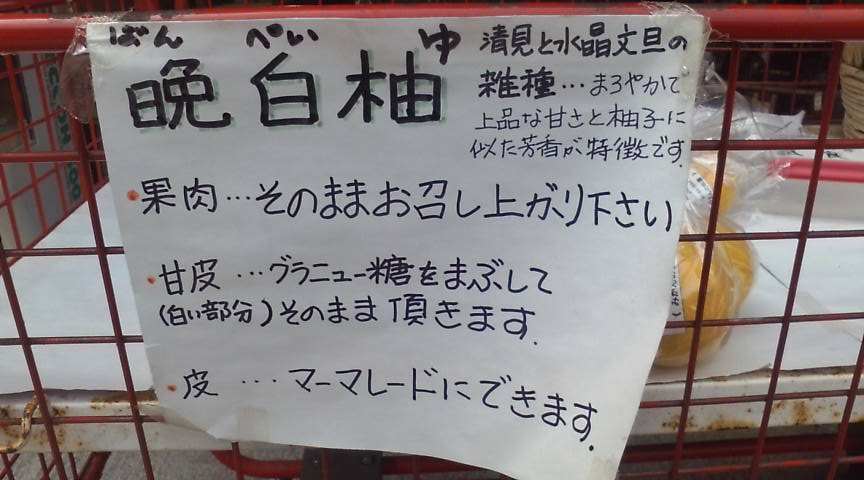 ばん ぺい ゆ
晩白柚
清見と水晶文旦の
雑種…まろやかで
上品な甘さと柚子に
似た芳香が特徴です.
・果肉…そのままお召し上がり下さい
・甘皮…グラニュー糖をまぶして
(白い部分)そのまま頂きます.
・皮…マーマレードにできます.